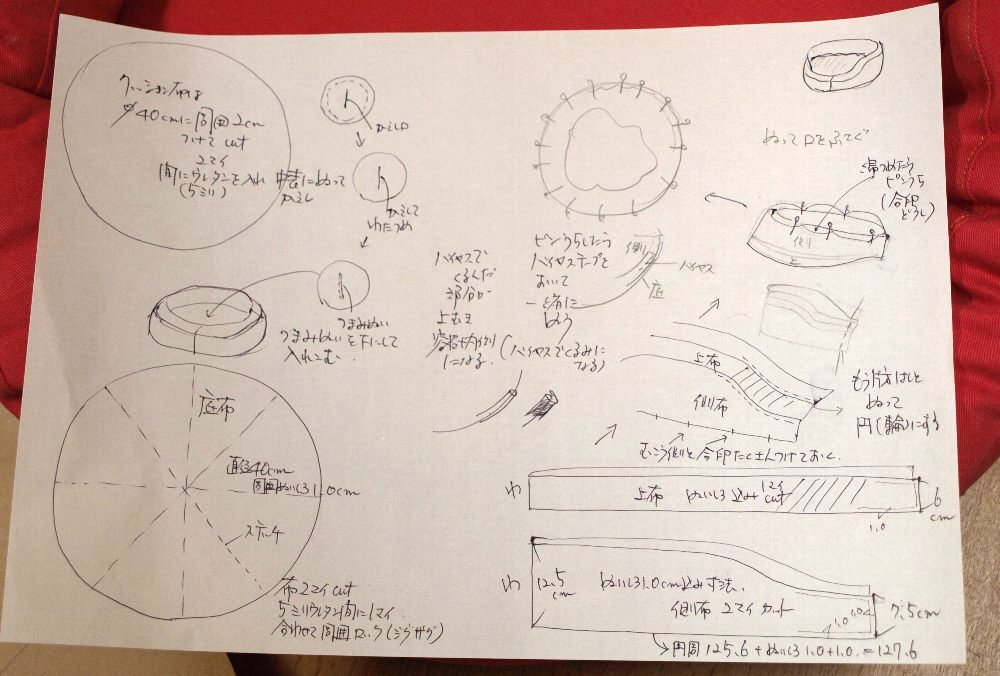 クッション布は
φ40cmに周囲2cm
つけてcut
2マイ
間にウレタンを入れ 中表にぬって
(5ミリ) かえし
かえし口
かえして
わたつめ
つまみぬい
つまみぬいを下にして
入れこむ.
底布
直径40cm
周囲ぬいしろ1.0cm
ステッチ
布2マイcut
5ミリウレタン間に1マイ.
合わせて周囲ロック(ジグザグ)
バイヤスで
くるんだ
部分が
上むき
内側
になる.
ピンうちしたら
バイヤステープを
おいて
一緒に
ぬう
(バイヤスでくるみに
なる)
側
バイヤス
底
ぬって口をふさぐ
ピンうち
(合印
どうし)
側
上布
側布
もう片方はしと
ぬって
円(輪)にする
むこう側と合印たくさんつけておく.
わ
上布 ぬいしろ込み 12マイ cut
1.0
6
cm
わ
12.5
cm
ぬいしろ1.0cm込み寸法.
側布 2マイ カット
1.0
1.0
7.5cm
→円周125.6+ぬいしろ1.0+1.0.=127.6